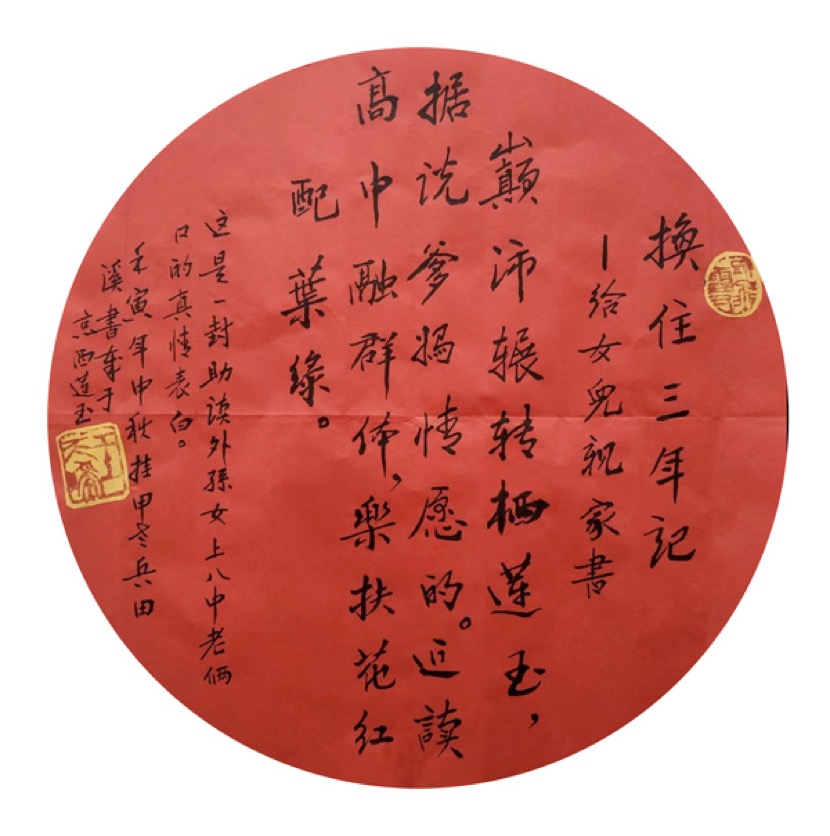 換住三年記
—给女兒親家書
巔沛辗转栖莲玉，
据说爹妈情愿的。近读
高中融群体，樂扶花红
配葉绿。
这是一封助读外孫女上八中老俩
口的真情表白。
壬寅年中秋挂甲老兵田
溪書奉于
京西莲玉